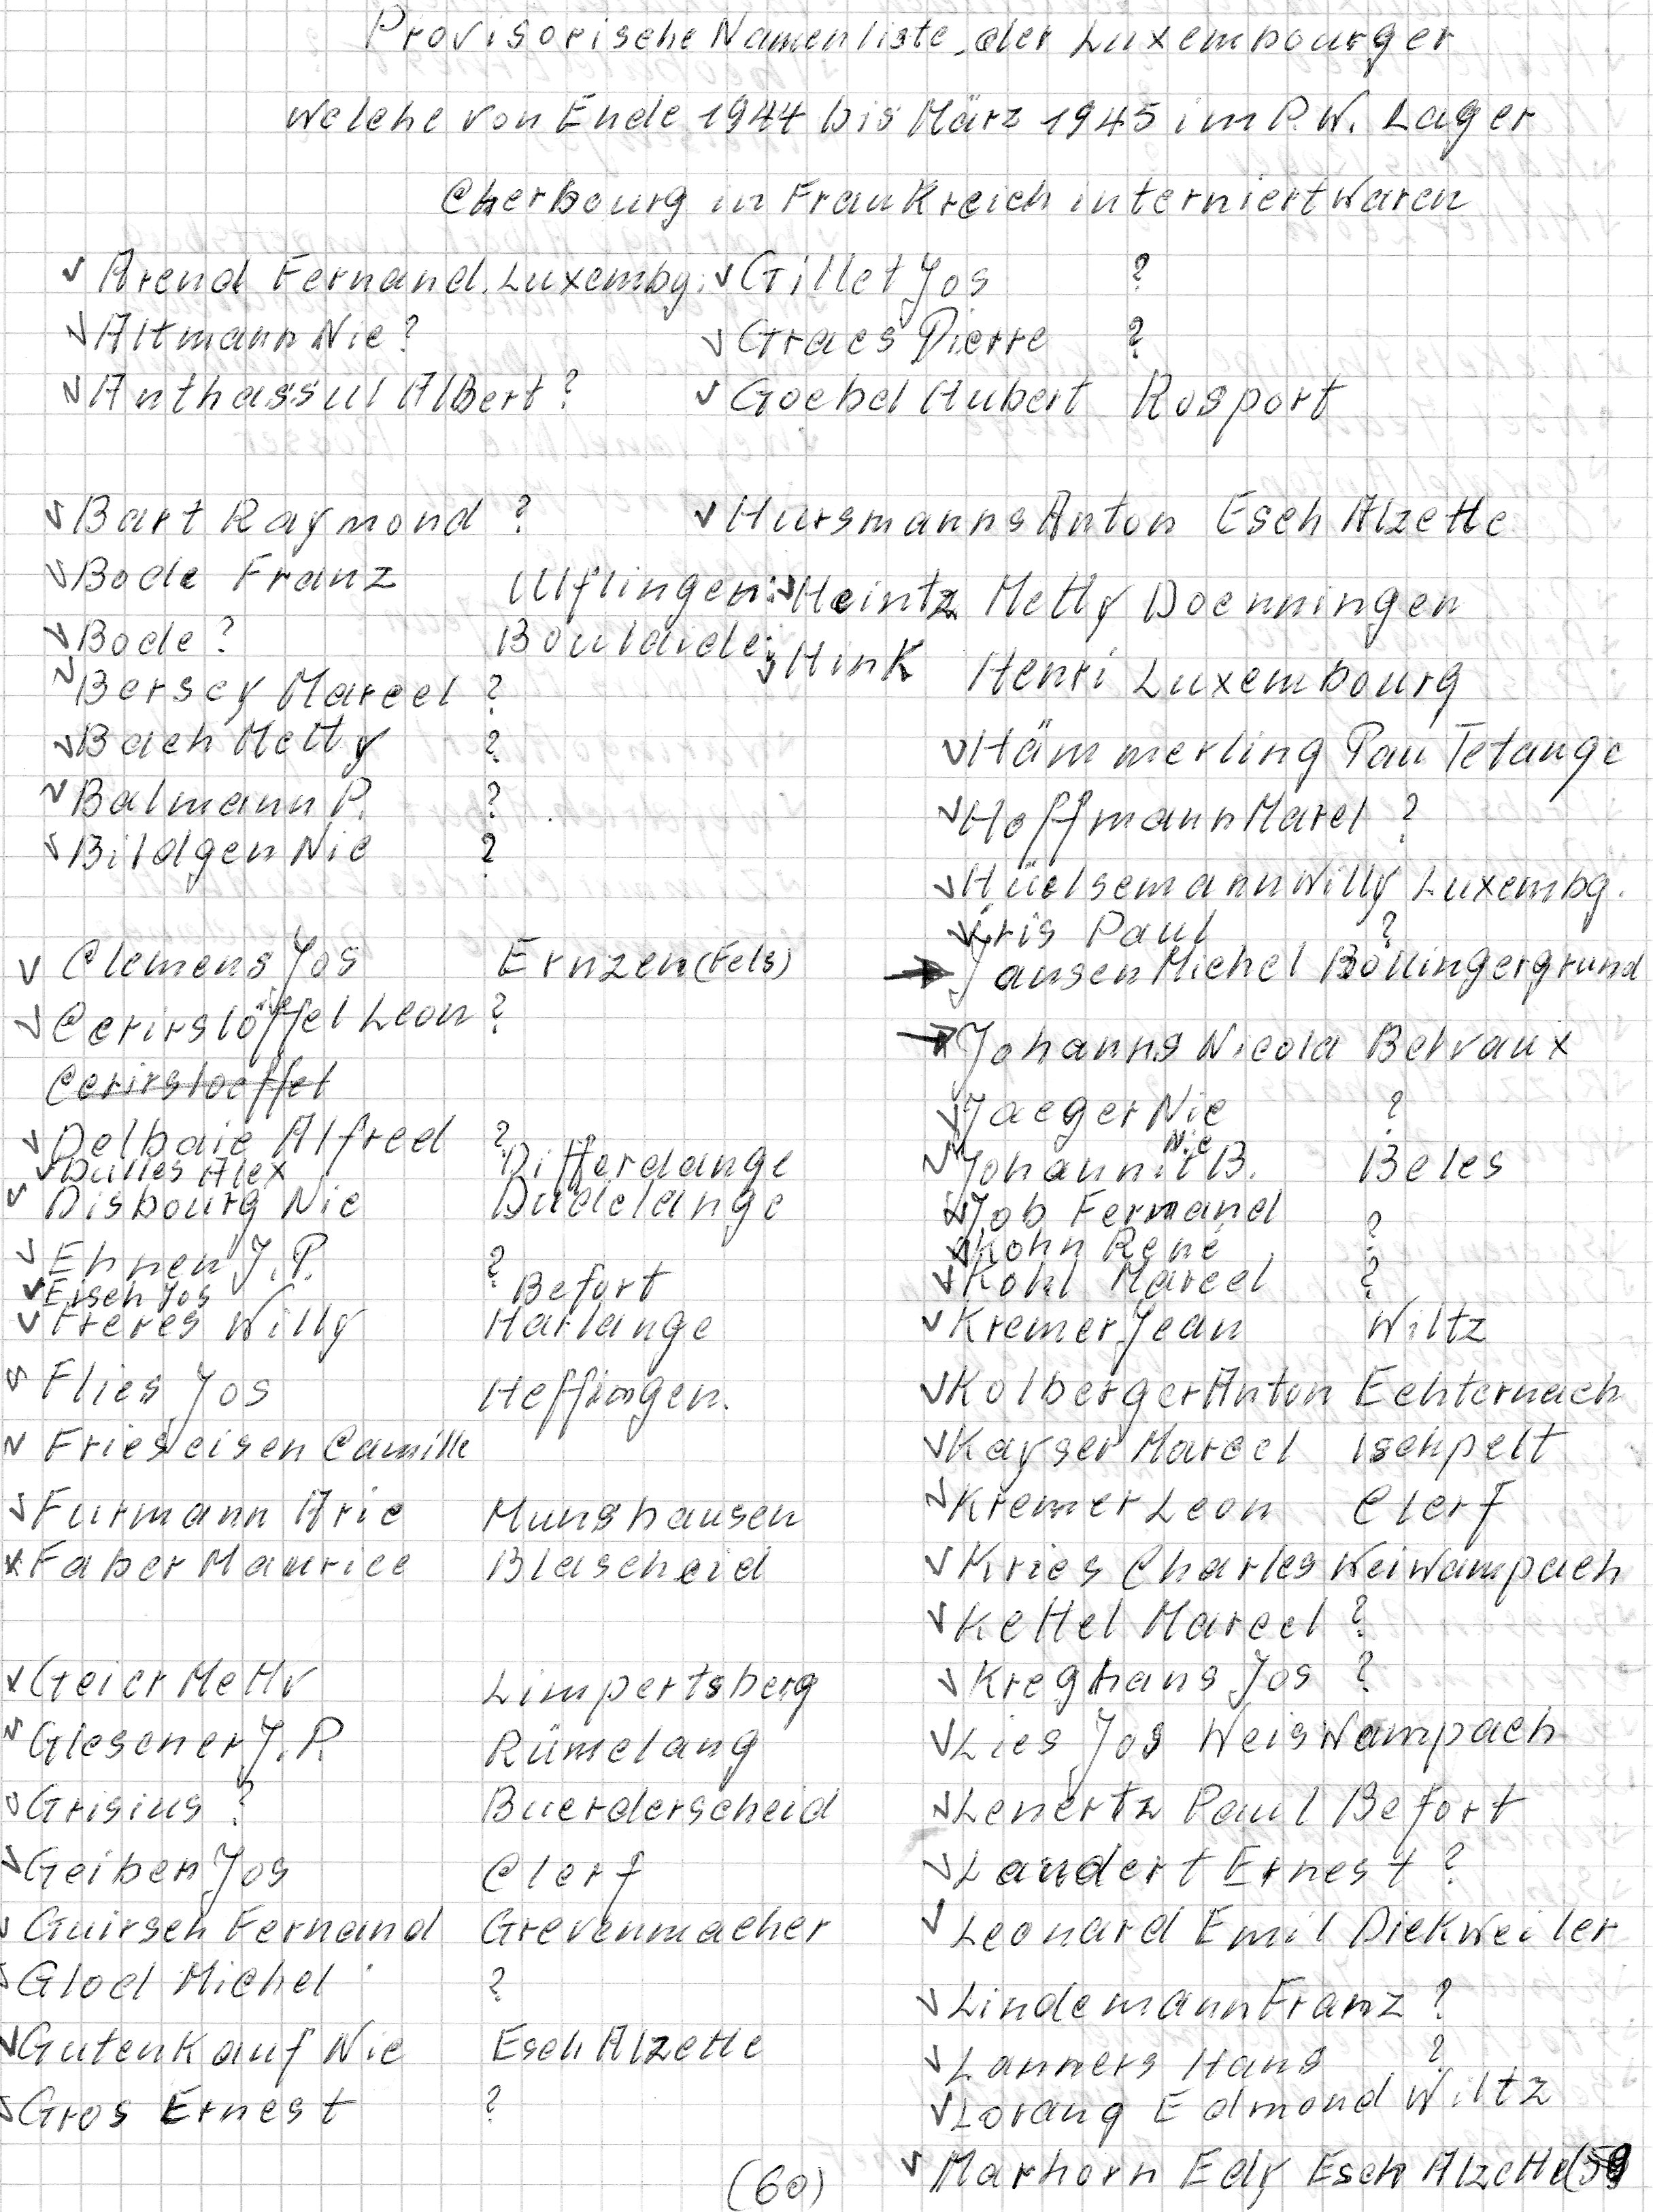 Provisorische Namenliste der Luxembourger
welche von Ende 1944 bis März 1945 im P.W. Lager
Cherbourg in Frankreich interniert waren
Arend Fernand. Luxembg.
Altmann Nic ?
Anthassul Albert ?
Bart Raymond ?
Bode Franz Ulflingen
Bode ? Bouldide
Bersey Marcel ?
Bach Metty ?
Balmann P. ?
Bildgen Nic ?
Clemens Jos Ernzen (Fels)
Cerirslöffel Leon ?
Cerirsloeffel
Delbaie Alfred ?
Dulles Alex Differdange
Disbourg Nic Dudelange
Ehnen J.P. ?
Eisch Jos Befort
Freres Willy Harlange
Flies Jos Heffingen.
Frieseisen Camille
Furmann Arie Munshausen
Faber Maurice Blascheid
Geier Metty Limpertsberg
Glesener J.P. Rümelang
Grisius ? Buerderscheid
Geiben Jos Clerf
Guirsch Fernand Grevenmacher
Glod Michel ?
Gutenkauf Nic Esch Alzette
Gros Ernest ?
(60)
Gillet Jos ?
Graes Pierre ?
Goebel Hubert Rosport
Hursmanns Anton Esch Alzette
Heintz Metty Doenningen
Hink Henri Luxembourg
Hämmerling Pau Tetange
Hoffmann Marel ?
Hüelsemann Willy Luxembg.
Iris Paul ?
Jansen Michel Böllingergrund
Johanns Nicola Belvaux
Jaeger Nic ?
Johannit Nic B. Beles
Job Fernand ?
Kohn René ?
Kohl Marcel ?
Kremer Jean Wiltz
Kolberger Anton Echternach
Kayser Marcel Ischpelt
Kremer Leon Clerf
Kries Charles Weiwampach
Kettel Marcel ?
Kreghans Jos ?
Lies Jos Weiswampach
Lenertz Paul Befort
Laudert Ernest ?
Leonard Emil Diekweiler
Lindemann Franz ?
Lanners Hans ?
Lorang Edmond Wiltz
Marhorn Edy Esch Alzette (59